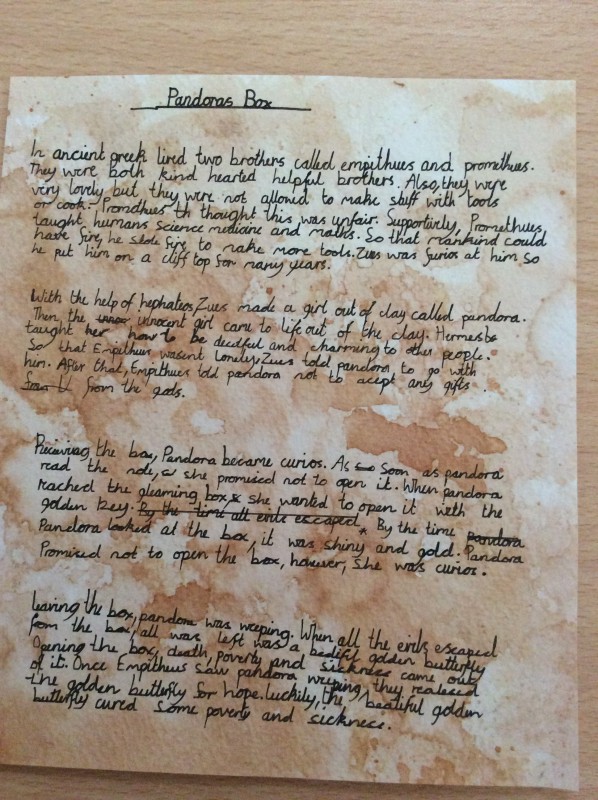 Pandoras Box
In ancient greek lived two brothers called empithues and promethues.
They were both kind hearted helpful brothers. Also, they were
very lovely but they were not allowed to make stuff with tools
or cook. Promethues th thought this was unfair. Supportively, Promethues,
taught humans science medicine and maths. So that mankind could
have fire, he stole fire to make more tools. Zues was furios at him so
he put him on a cliff top for many years.
With the help of hephateos, Zues made a girl out of clay called pandora.
Then the innocent girl came to life out of the clay. Hermes
taught her how to be decitful and charming to other people.
So that Empithues wasent lonely, Zues told pandora to go with
him. After that, Empithues told pandora not to acept any gifts
from the gods.
Receiving the box, Pandora became curios. As so Soon as pandora
read the note, she promised not to open it. When pandora
reached the gleaming box, she wanted to open it with the
golden key. By the time all evils escaped * By the time pandora
Pandora looked at the box, it was shiny and gold. Pandora
Promised not to open the box, however, she was curios.
leaving the box, pandora was weeping. When all the evils escaped
from the box, all was left was a golden butterfly
Opening the box, death, poverty and sickness came out
of it. Once Empithues saw pandora weeping, they realesed
the golden butterfly for hope. luckily, the beatiful golden
butterfly cured some poverty and sickness.